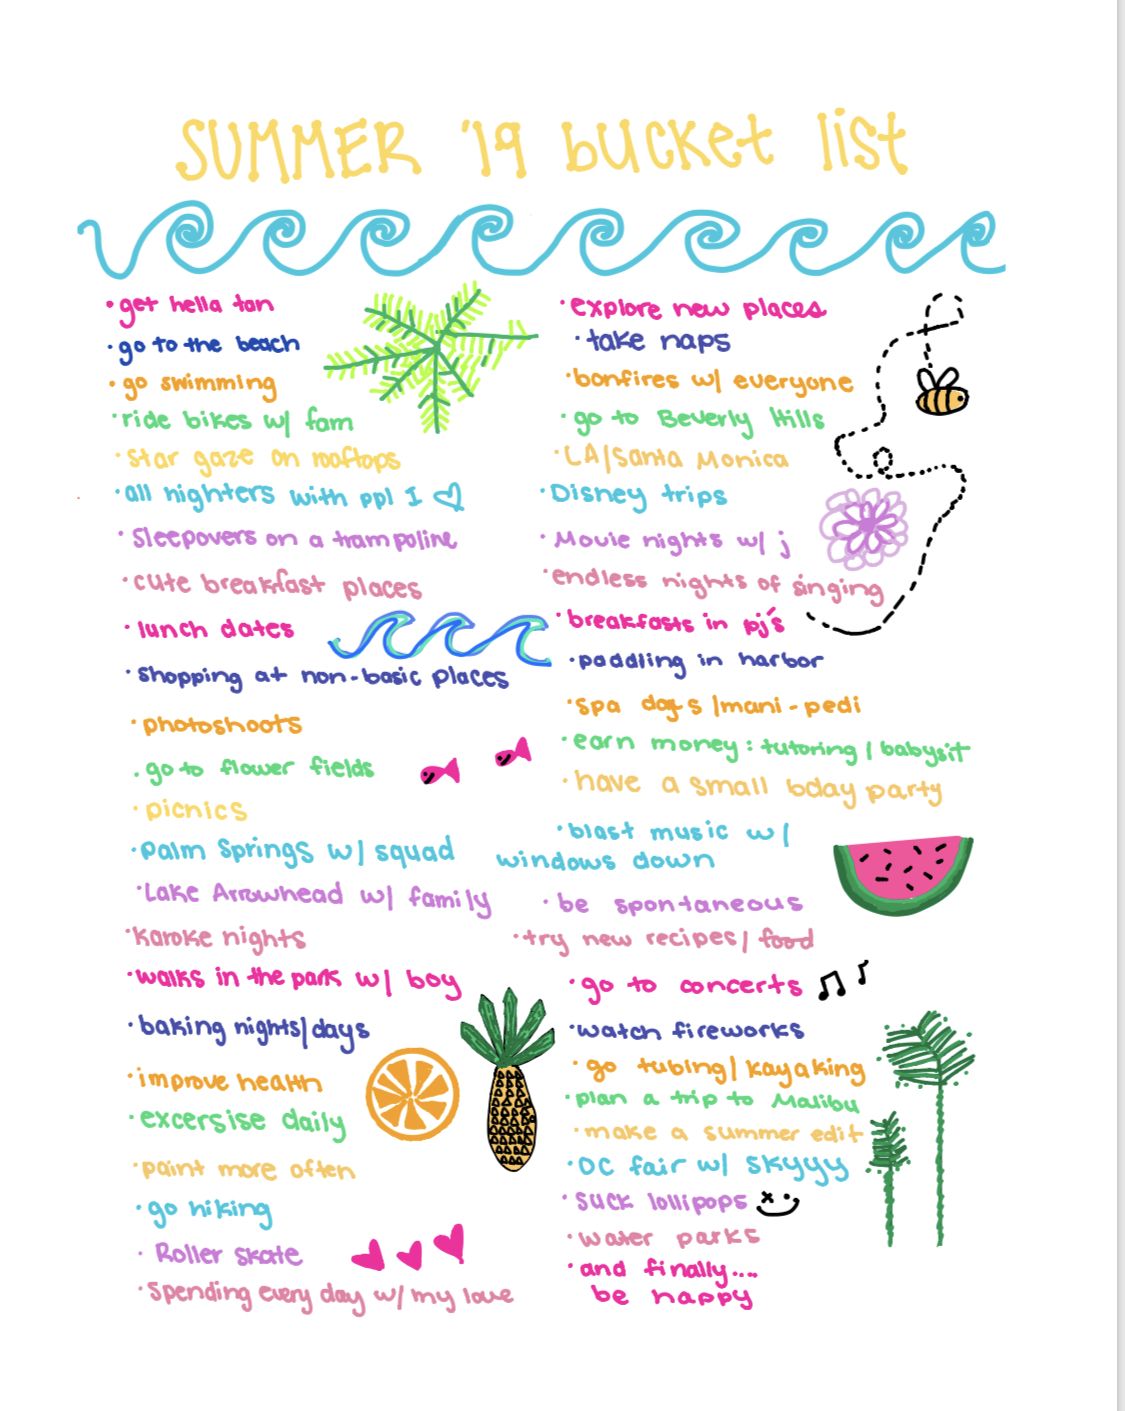 SUMMER '19 bucket list
· get hella tan
· go to the beach
· go swimming
· ride bikes w/ fam
· star gaze on rooftops
· all nighters with ppl I ♡
· Sleepovers on a trampoline
· cute breakfast places
· lunch dates
· shopping at non-basic places
· photoshoots
· go to flower fields
· picnics
· Palm Springs w/ squad
· Lake Arrowhead w/ family
· Karoke nights
· walks in the park w/ boy
· baking nights/days
· improve health
· excersise daily
· paint more often
· go hiking
· Roller skate
· Spending every day w/ my love
· explore new places
· take naps
· bonfires w/ everyone
· go to Beverly Hills
· LA/Santa Monica
· Disney trips
· Movie nights w/ j
· endless nights of singing
· breakfasts in pj's
· paddling in harbor
· spa days/mani-pedi
· earn money: tutoring/babysit
· have a small bday party
· blast music w/
windows down
· be spontaneous
· try new recipes/food
· go to concerts
· watch fireworks
· go tubing/kayaking
· plan a trip to Malibu
· make a summer edit
· OC fair w/ skyyy
· suck lollipops
· water parks
· and finally...
be happy